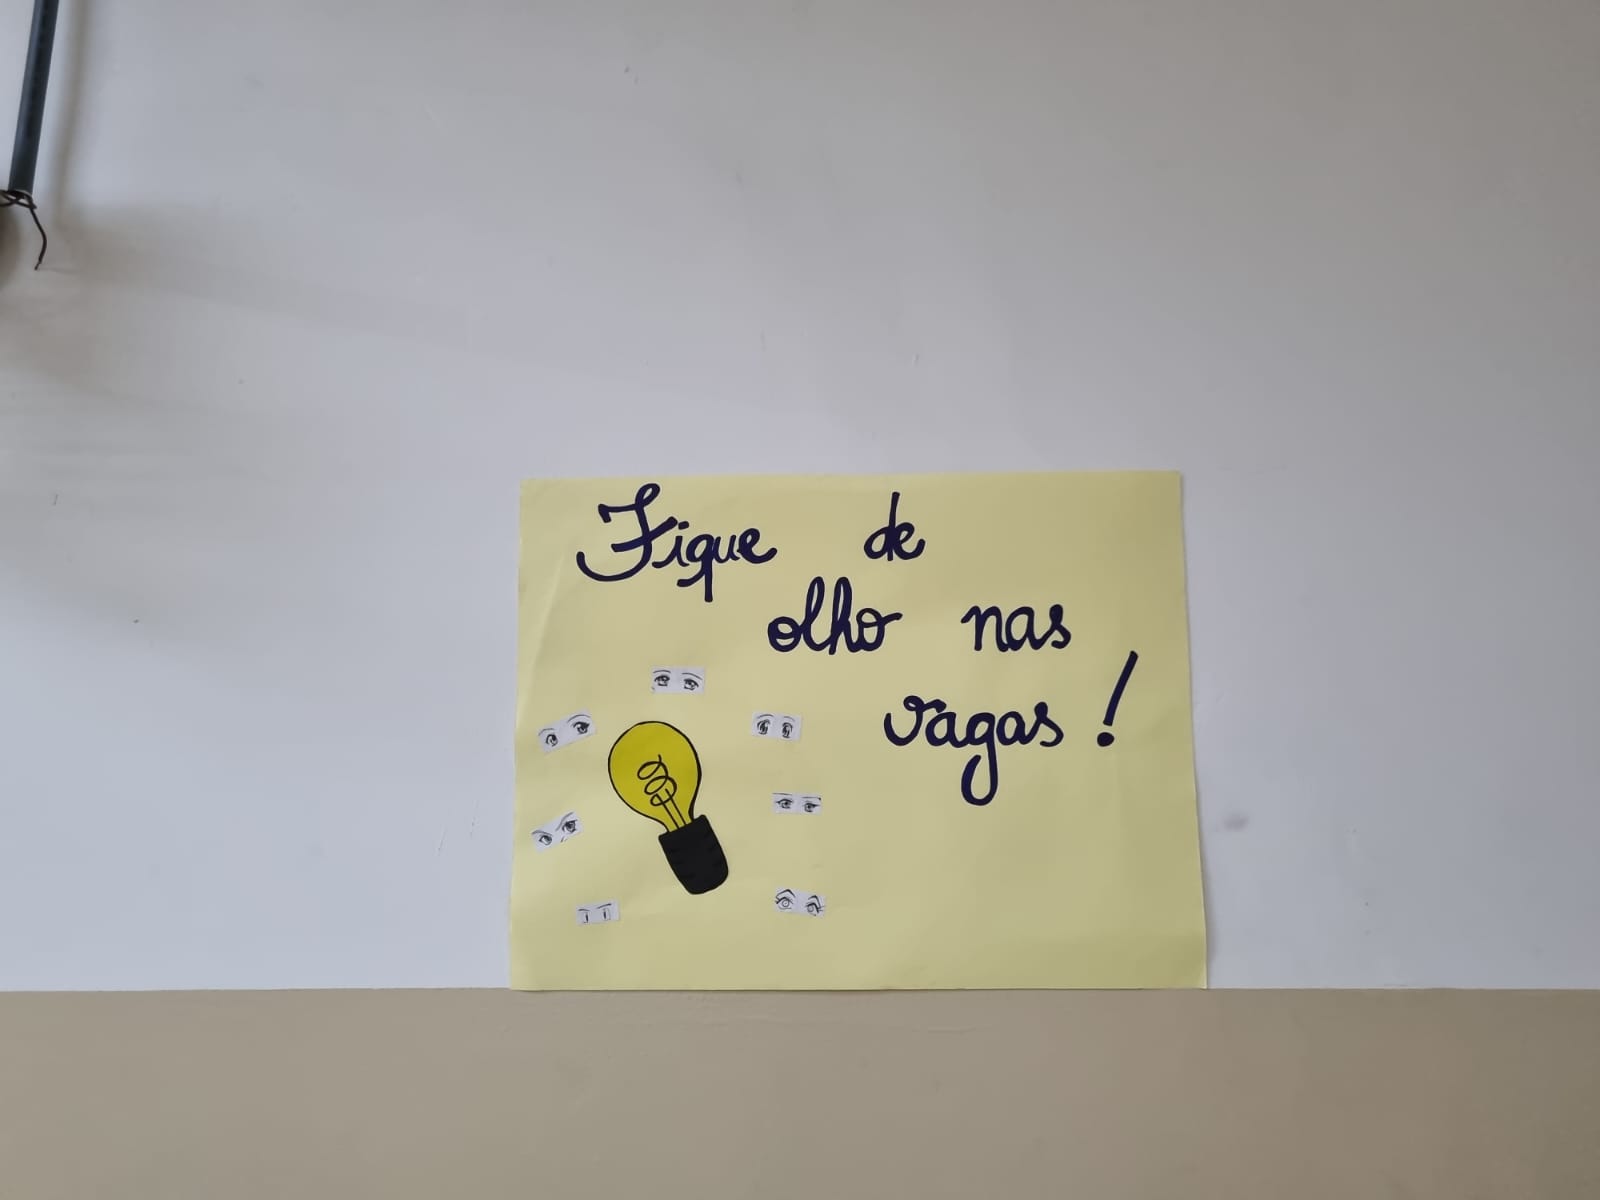 Fique de
olho nas
vagas!